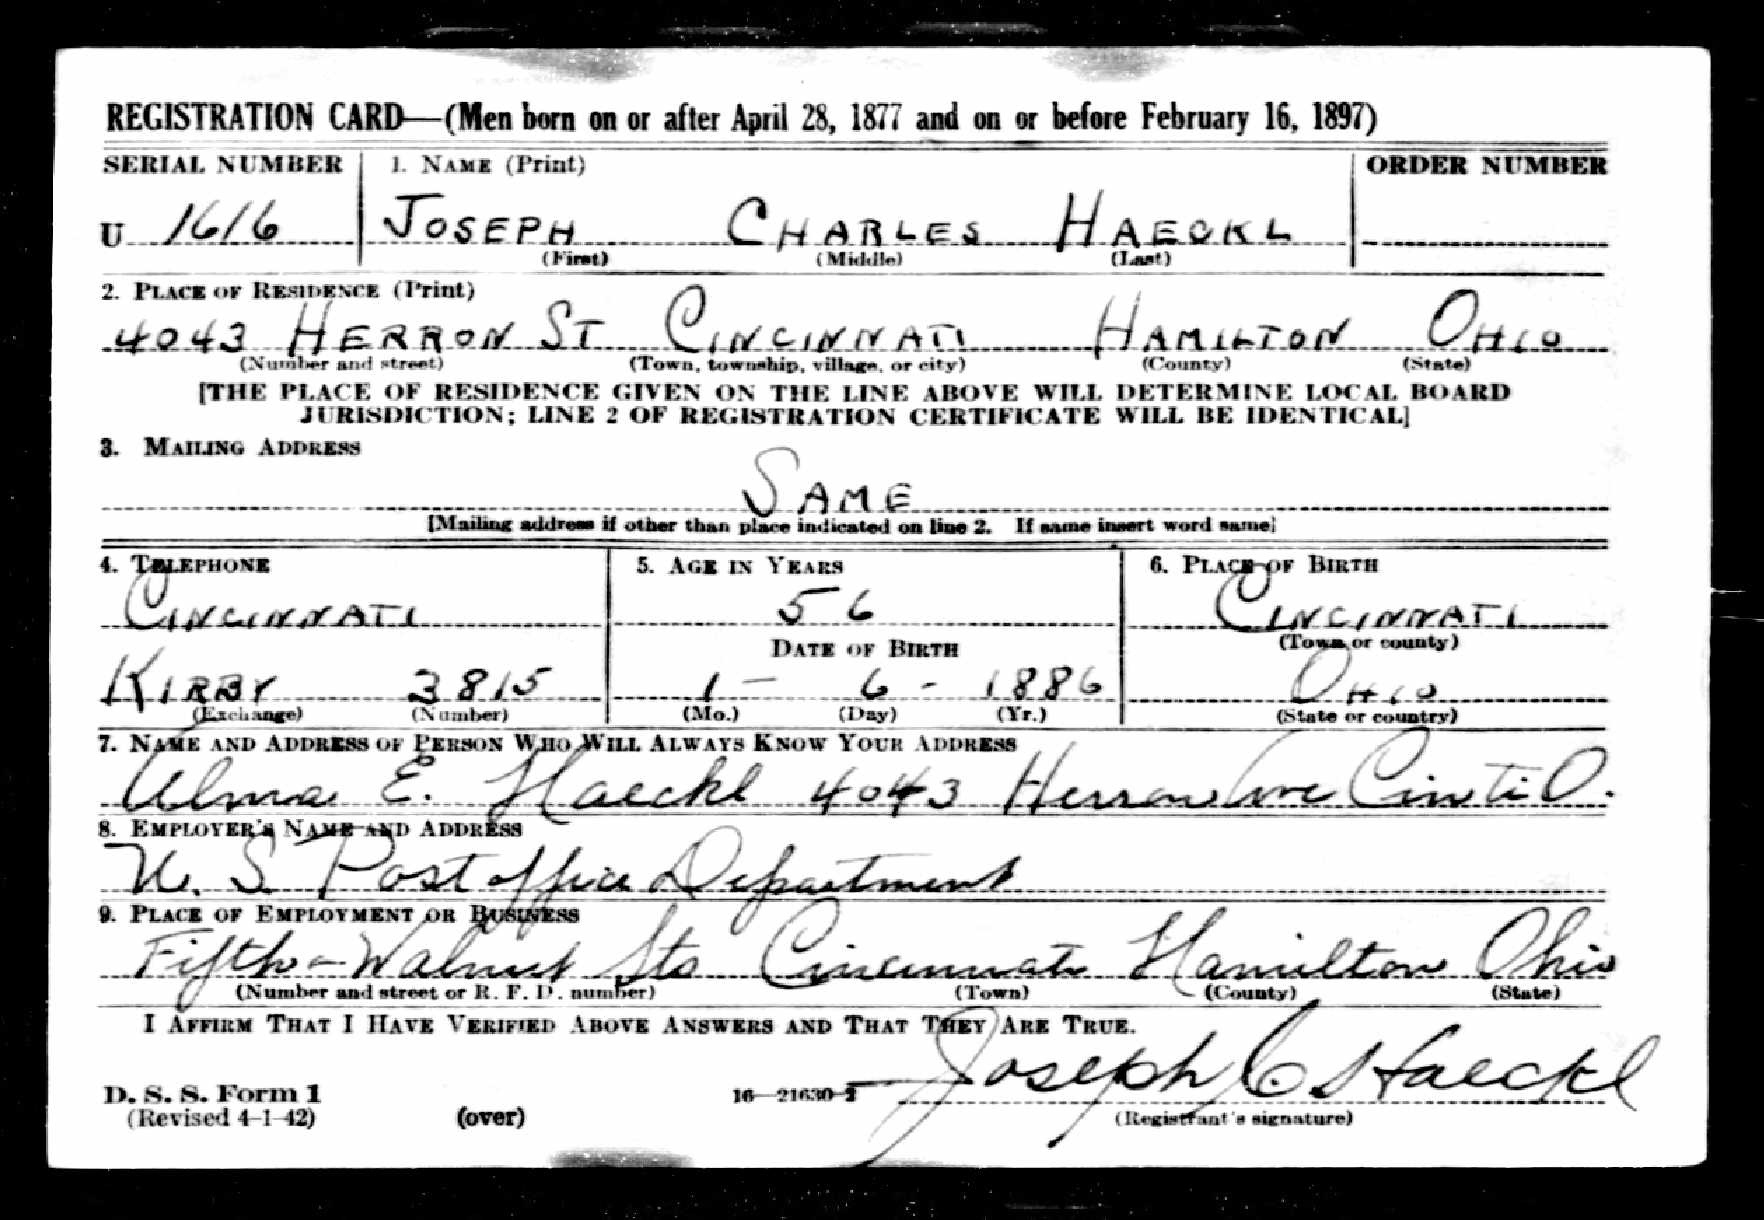 REGISTRATION CARD—(Men born on or after April 28, 1877 and on or before February 16, 1897)
SERIAL NUMBER 1. NAME (Print) ORDER NUMBER
U 1616 JOSEPH CHARLES HAECKL
(First) (Middle) (Last)
2. PLACE OF RESIDENCE (Print)
4043 HERRON ST CINCINNATI HAMILTON OHIO
(Number and street) (Town, township, village, or city) (County) (State)
[THE PLACE OF RESIDENCE GIVEN ON THE LINE ABOVE WILL DETERMINE LOCAL BOARD
JURISDICTION; LINE 2 OF REGISTRATION CERTIFICATE WILL BE IDENTICAL]
3. MAILING ADDRESS
SAME
[Mailing address if other than place indicated on line 2. If same insert word same]
4. TELEPHONE 5. AGE IN YEARS 6. PLACE OF BIRTH
CINCINNATI 56 CINCINNATI
DATE OF BIRTH (Town or county)
KIRBY 3815 1 - 6 - 1886 OHIO
(Exchange) (Number) (Mo.) (Day) (Yr.) (State or country)
7. NAME AND ADDRESS OF PERSON WHO WILL ALWAYS KNOW YOUR ADDRESS
Alma E. Haeckl 4043 Herron Ave Cinti O.
8. EMPLOYER'S NAME AND ADDRESS
U. S. Post office Department
9. PLACE OF EMPLOYMENT OR BUSINESS
Fifth - Walnut Sts Cincinnati Hamilton Ohio
(Number and street or R. F. D. number) (Town) (County) (State)
I AFFIRM THAT I HAVE VERIFIED ABOVE ANSWERS AND THAT THEY ARE TRUE.
Joseph C. Haeckl
D. S. S. Form 1 16—21630-2
(Revised 4-1-42) (over) (Registrant's signature)